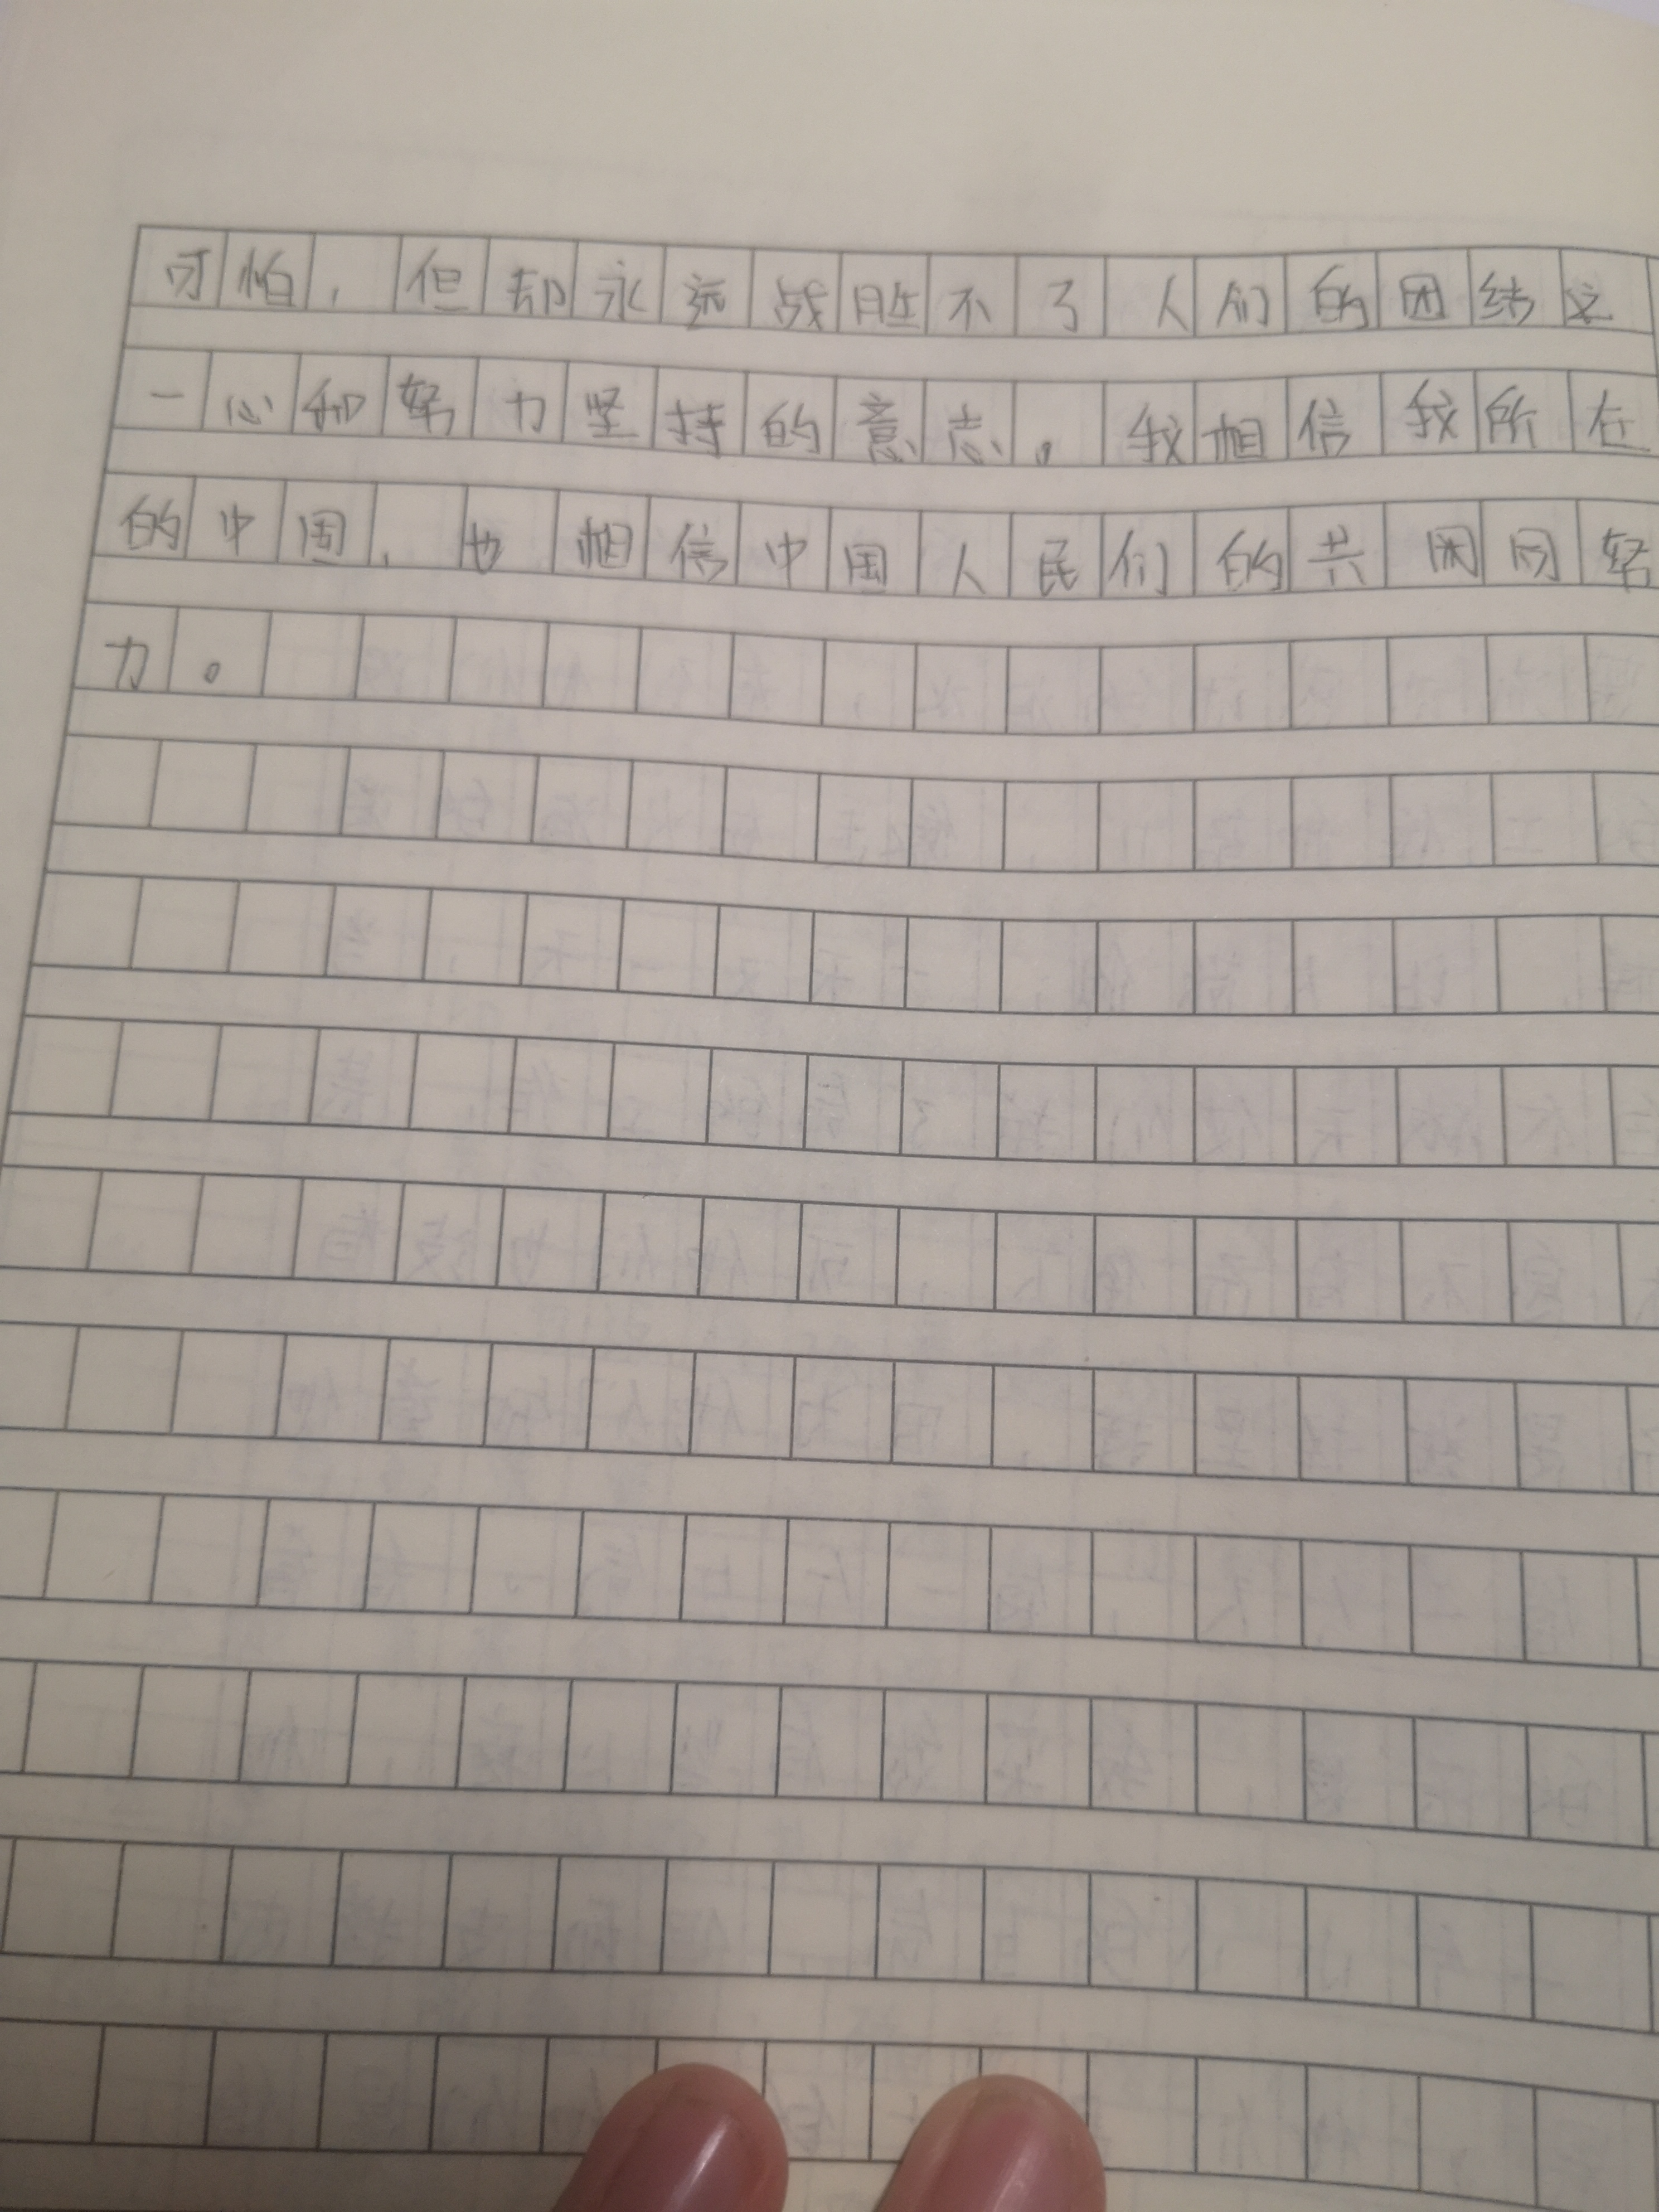 可怕，但却永远战胜不了人们的团结之
一心和努力坚持的意志。我相信我所在
的中国，也相信中国人民们的共困同努
力。